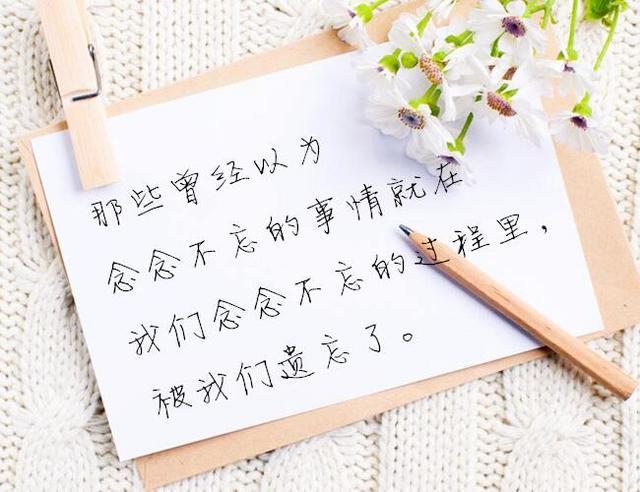 那些曾经以为
念念不忘的事情就在
我们念念不忘的过程里，
被我们遗忘了。